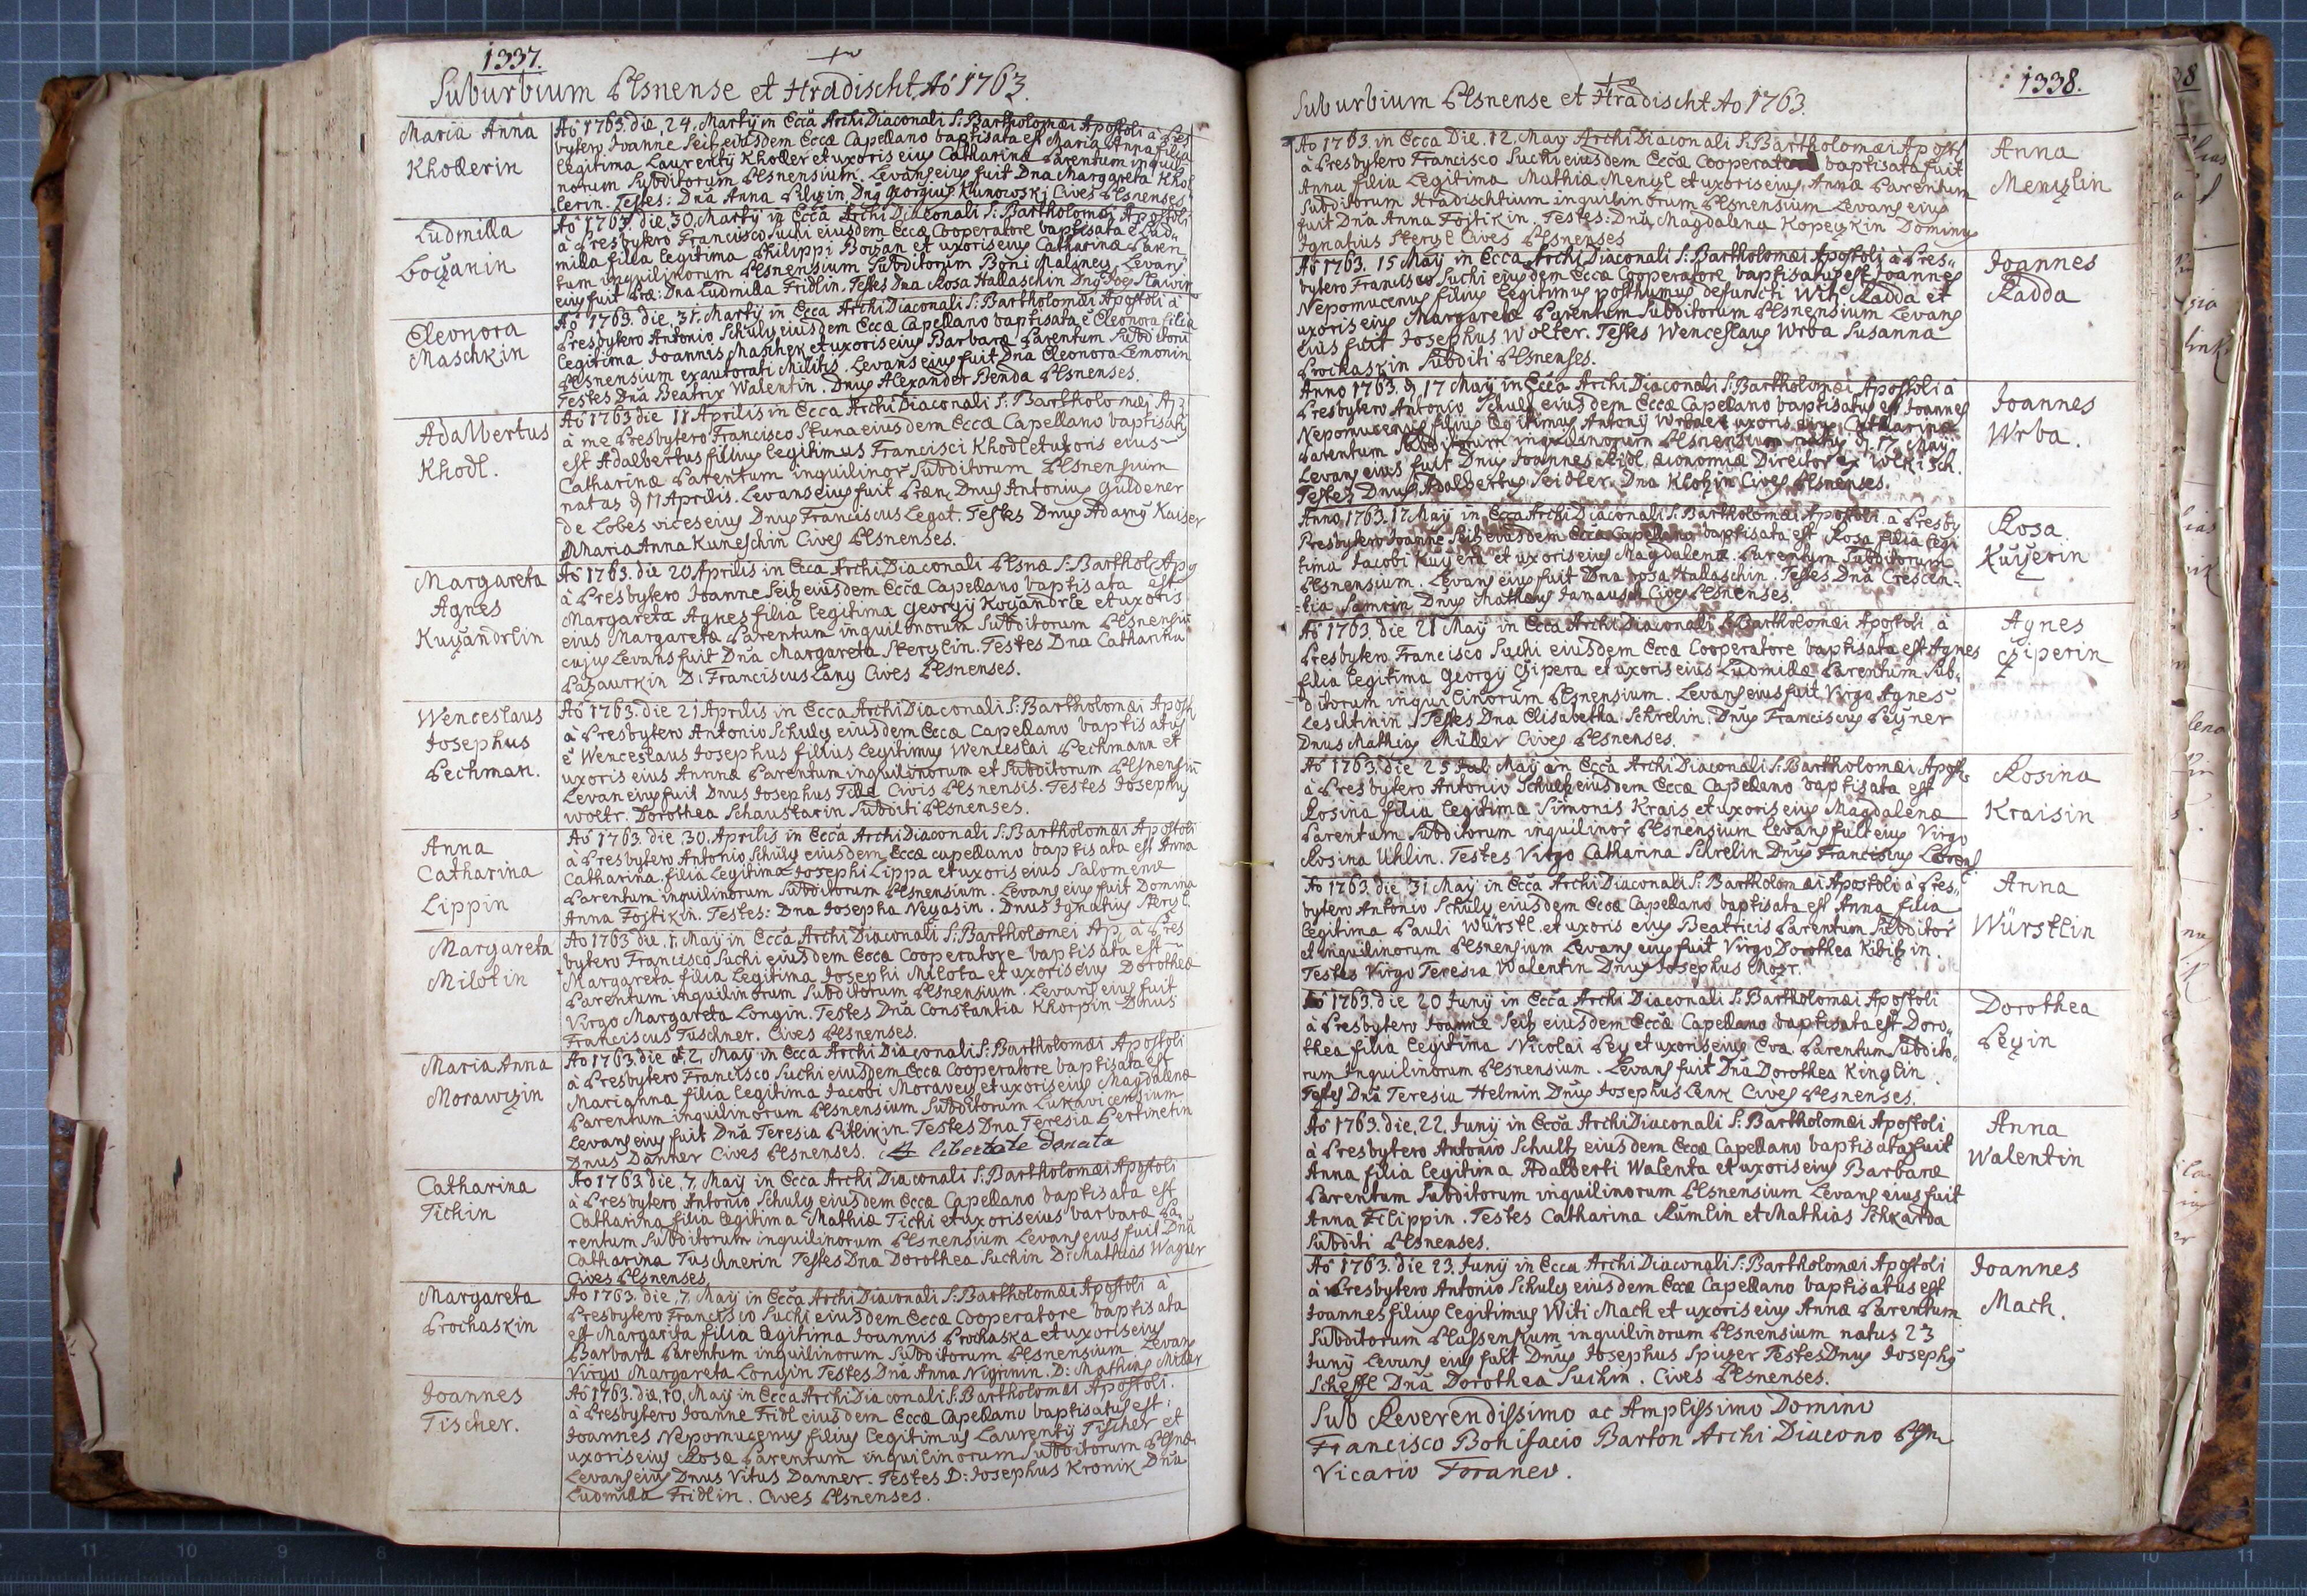 1337.
Suburbium Plsnense et Hradischt Ao 1763.
Maria Anna
Khollerin
Ao 1763. die, 24. Martij in Ecca ArchiDiaconali S: Bartholomæi Apostoli à Pres
bytero Joanne Seitz eiusdem Eccæ Capellano baptisata est Maria Anna filia
legitima Laurentij Kholler et uxoris eius Catharinæ Parentum inquili
norum Subditorum Plsnensium. Levans eius fuit Dna Margareta Khol
lerin. Testes: Dna Anna Pilzin Dng Georgius Kunowskj Cives Plsnenses.
Ludmilla
Boizanin
Ao 1763. die, 30. Martij in Ecca ArchiDiaconali S: Bartholomæi Apostoli
à Presbytero Francisco Suchi eiusdem Eccæ Cooperatore baptisata e Lud„
milla filia legitima Philippi Boizan et uxoris eius Catharinæ Paren
tum inquilinorum Plsnensium Subditorum Boni Maliney. Levans
eius fuit Dna Ludmilla Fridlin. Testes Dna Rosa Hallaschin Dng
Eleonora
Maschkin
Ao 1763. die, 31. Martij in Ecca ArchiDiaconali S: Bartholomæi Apostoli à
Presbytero Antonio Schulz eiusdem Eccæ Capellano baptisata e Eleonora filia
legitima Joannis Maschek et uxoris eius Barbaræ Parentum Subditorū
Plsnensium exautorati Militis. Levans eius fuit Dna Eleonora Lemonin
Testes Dna Beatrix Walentin. Dnus Alexander Benda Plsnenses.
Adalbertus
Khodl.
Ao 1763 die 11 Aprilis in Ecca ArchiDiaconali S: Bartholomæi Ap:
à me Presbytero Francisco Skuna eiusdem Eccæ Capellano baptisatus
est Adalbertus filius legitimus Francisci Khodl et uxoris eius
Catharinæ Parentum inquilinor Subditorum Plsnensium
natus d 11 Aprilis. Levans eius fuit Præn. Dnus Antonius Guldener
de Lobes vices eius Dnus Franciscus Legat. Testes Dnus Adamus Kaiser
Maria Anna Kuneschin Cives Plsnenses.
Margareta
Agnes
Kuizandrlin
Ao 1763. die 20 Aprilis in Ecca ArchiDiaconali Plsnæ S: Barthol: Ap:
à Presbytero Joanne Seitz eiusdem Eccæ Capellano baptisata est
Margareta Agnes filia legitima Georgij Koizandrle et uxoris
eius Margaretæ Parentum inquilinorum Subditorum Plsnensiū
cujus Levans fuit Dna Margareta Sterzlin. Testes Dna Catharina
Pazaurkin D: Franciscus Lang Cives Plsnenses.
Wenceslaus
Josephus
Pechman.
Ao 1763. die 21 Aprilis in Ecca ArchiDiaconali S: Bartholomæi Apost
à Presbytero Antonio Schulz eiusdem Eccæ Capellano baptisatus
e Wenceslaus Josephus filius legitimus Wenceslai Pechmann et
uxoris eius Annnæ Parentum inquilinorum et Subditorum Plsnensiū
Levans eius fuit Dnus Josephus Tille Civis Plsnensis. Testes Josephus
Woltr. Dorothea Schaustarin Subditi Plsnenses.
Anna
Catharina
Lippin
Ao 1763. die, 30. Aprilis in Ecca ArchiDiaconali S: Bartholomæi Apostoli
à Presbytero Antonio Schulz eiusdem Eccæ capellano baptisata est Anna
Catharina. filia legitima Josephi Lippa et uxoris eius Salomenæ
Parentum inquilinorum Subditorum Plsnensium. Levans eius fuit Domina
Anna Fojtikin. Testes: Dna Josepha Neyasin. Dnus Ignatius Sterzl.
Margareta
Milotin
Ao 1763 die, 1. May in Ecca ArchiDiaconali S: Bartholomei Ap. à Pres
bytero Francisco Suchi eiusdem Eccæ Cooperatore baptisata est
Margareta filia legitima Josephi Milota et uxoris eius Dorotheæ
Parentum inquilinorum Subditorum Plsnensium. Levans eius fuit
Virgo Margareta Longin. Testes Dna Constantia Khorpin Dnus
Franciscus Tuschner. Cives Plsnenses.
Maria Anna
Morawizin
Ao 1763. die 2. May in Ecca ArchiDiaconali S: Bartholomæi Apostoli
à Presbytero Francisco Suchi eiusdem Eccæ Cooperatore baptisata est
Marianna filia legitima Jacobi Moravey et uxoris eius Magdalenæ
Parentum inquilinorum Plsnensium Subditorum Lukavicensium
Levans eius fuit Dna Teresia Pitlikin. Testes Dna Teresia Pertinetin
Dnus Danner Cives Plsnenses. libertate donata
Catharina
Tichin
Ao 1763 die, 7. May in Ecca ArchiDiaconali S: Bartholomæi Apostoli
à Presbytero Antonio Schulz eiusdem Eccæ Capellano baptisata est
Catharina filia legitima Mathiæ Tichi et uxoris eius barbaræ Pa„
rentum Subditorum inquilinorum Plsnensium Levans eius fuit Dna
Catharina Tuschnerin Testes Dna Dorothea Suchin D: Mathias Wagner
Cives Plsnenses.
Margareta
Prochaskin
Ao 1763. die, 7. May in Ecca ArchiDiaconali S: Bartholomæi Apostoli à
Presbytero Francisco Suchi eiusdem Eccæ Cooperatore baptisata
est Margarita filia legitima Joannis Prochaska et uxoris eius
Barbara Parentum inquilinorum Subditorum Plsnensium Levans
Virgo Margareta Longin Testes Dna Anna Nigrinin. D: Mathias Miller
Joannes
Tischer.
Ao 1763. die, 10. May in Ecca ArchiDiaconali S: Bartholomæi Apostoli.
à Presbytero Joanne Fridl eiusdem Eccæ Capellano baptisatus est:
Joannes Nepomucenus filius legitimus Laurentij Tischer et
uxoris eius Rosæ Parentum inquilinorum Subditorum Plsnen.
Levans eius Dnus Vitus Danner. Testes D: Josephus Kronik Dna
Ludmilla Fridlin. Cives Plsnenses.
1338.
Suburbium Plsnense et Hradischt Ao 1763.
Ao 1763. in Ecca Die. 12. May ArchiDiaconali S: Bartholomæi Apost
à Presbytero Francisco Suchi eiusdem Eccæ Cooperatore baptisata fuit
Anna filia legitima Mathiæ Menzl et uxoris eius Annæ Parentum
Subditorum Hradischtium inquilinorum Plsnensium Levans eius
fuit Dna Anna Fojtikin. Testes: Dna Magdalena Kopezkin Dominus
Ignatius Sterzl Cives Plsnenses
Anna
Menzlin
Ao 1763. 15 May in Ecca ArchiDiaconali S: Bartholomæi Apostoli à Pres„
bytero Francisco Suchi eiusdem Eccæ Cooperatore baptisatus est Joannes
Nepomucenus filius legitimus posthumus defuncti Witi Radda et
uxoris eius Margaretæ Parentum Subditorum Plsnensium Levans
eius fuit Josephus Wolter. Testes Wenceslaus Wrba Susanna
Prochaskin Subditi Plsnenses.
Joannes
Radda
Anno 1763. d, 17 May in Ecca ArchiDiaconali S: Bartholomæi Apostoli à
Presbytero Antonio Schulz eiusdem Eccæ Capellano baptisatus est Joannes
Nepomucenus filius legitimus Antonij Wrba et uxoris eius Catharinæ
Parentum Subditorum inquilinorum Plsnensium natus d. 17. May.
Levans eius fuit Dnus Joannes Æconomiæ Director ex Wlkisch.
Testes Dnus Adalbertus Seidler. Dna Klotzin Cives Plsnenses.
Joannes
Wrba.
Anno 1763. 17 May in Ecca ArchiDiaconali S: Bartholomæi Apostoli à Presby
Presbytero Joanne Seitz eiusdem Eccæ Capellano baptisata est Rosa filia legi
tima Jacobi Kuizera et uxoris eius Magdalenæ Parentum Subditorum
Plsnensium. Levans eius fuit Dna rosa Hallaschin. Testes Dna Crescen-
tia Samrin Dnus Matheus Janausch Cives Plsnenses.
Rosa
Kuizerin
Ao 1763. die 21 May in Ecca ArchiDiaconali S: Bartholomæi Apostoli à
Presbytero Francisco Suchi eiusdem Eccæ Cooperatore baptisata est Agnes
filia legitima Georgij Czipera et uxoris eius Ludmillæ Parentum Sub„
ditorum inquilinorum Plsnensium. Levans eius fuit Virgo Agnes
Leschtinin. Testes Dna Elisabetha Schrelin. Dnus Franciscus Peyner
Dnus Mathias Müller Cives Plsnenses.
Agnes
Cziperin
Ao 1763. die 25 May in Ecca ArchiDiaconali S: Bartholomæi Aposto
à Presbytero Antonio Schultz eiusdem Eccæ Capellano baptisata est
Rosina filia legitima Simonis Krais et uxoris eius Magdalenæ
Parentum Subditorum inquilinor Plsnensium Levans fuit eius Virgo
Rosina Uhlin. Testes Virgo Catharina Schrelin Dnus Franciscus
Rosina
Kraisin
Ao 1763. die, 31 May in Ecca ArchiDiaconali S: Bartholomæi Apostoli à Pres„
bytero Antonio Schulz eiusdem Eccæ Capellano baptisata est Anna filia
legitima Pauli Würstl et uxoris eius Beatricis Parentum Subditor
et inquilinorum Plsnensium Levans eius fuit Virgo Dorothea Kibitzin.
Testes Virgo Teresia Walentin Dnus Josephus Mozr.
Anna
Würstlin
Ao 1763. die 20 Junij in Ecca ArchiDiaconali S: Bartholomæi Apostoli
à Presbytero Joanne Seitz eiusdem Eccæ Capellano baptisata est Doro„
thea filia legitima Nicolai Pey et uxoris eius Eva. Parentum Subdito„
rum inquilinorum Plsnensium. Levans fuit Dna Dorothea Kinzlin
Testes Dna Teresia Helmin Dnus Josephus Lenk Cives Plsnenses.
Dorothea
Peyin
Ao 1763. die, 22. Junij in Ecca ArchiDiaconali S: Bartholomæi Apostoli
à Presbytero Antonio Schultz eiusdem Eccæ Capellano baptisata fuit
Anna filia legitima Adalberti Walenta et uxoris eius Barbaræ
Parentum Subditorum inquilinorum Plsnensium Levans eius fuit
Anna Filippin. Testes Catharina Rumlin et Mathias Schkarda
Subditi Plsnenses.
Anna
Walentin
Ao 1763. die 23. Junij in Ecca ArchiDiaconali S: Bartholomæi Apostoli
à Presbytero Antonio Schulz eiusdem Eccæ Capellano baptisatus est
Joannes filius legitimus Witi Mach et uxoris eius Annæ Parentum
Subditorum Plassensium inquilinorum Plsnensium natus 23
Junij Levans eius fuit Dnus Josephus Spizer Testes Dnus Josephus
Scheffl Dna Dorothea Suchin. Cives Plsnenses.
Joannes
Mach.
Sub Reverendissimo ac Amplissimo Domino
Francisco Bonifacio Barton Archi Diacono Plsn
Vicario Foraneo.